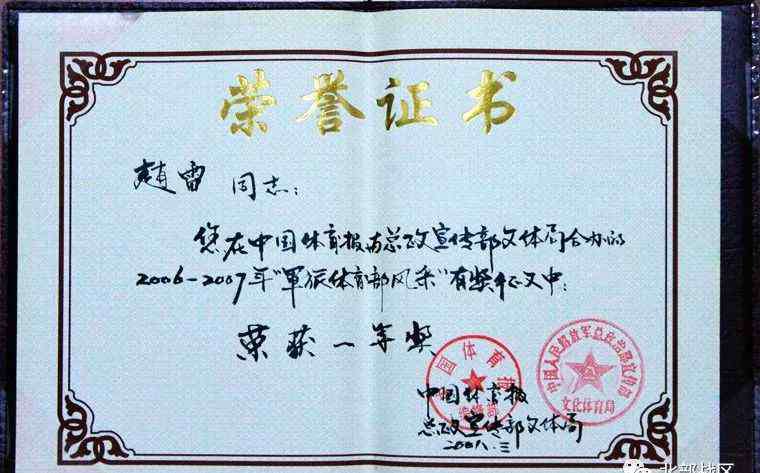 荣誉证书
趙雷 同志：
您在中国体育报与总政宣传部文体局合办的
2006-2007年“軍旅体育部风采”有奖征文中：
荣获一等奖
中国体育报
总政宣传部文体局
中国人民解放军总政治部宣传部
文化体育局
北部战区